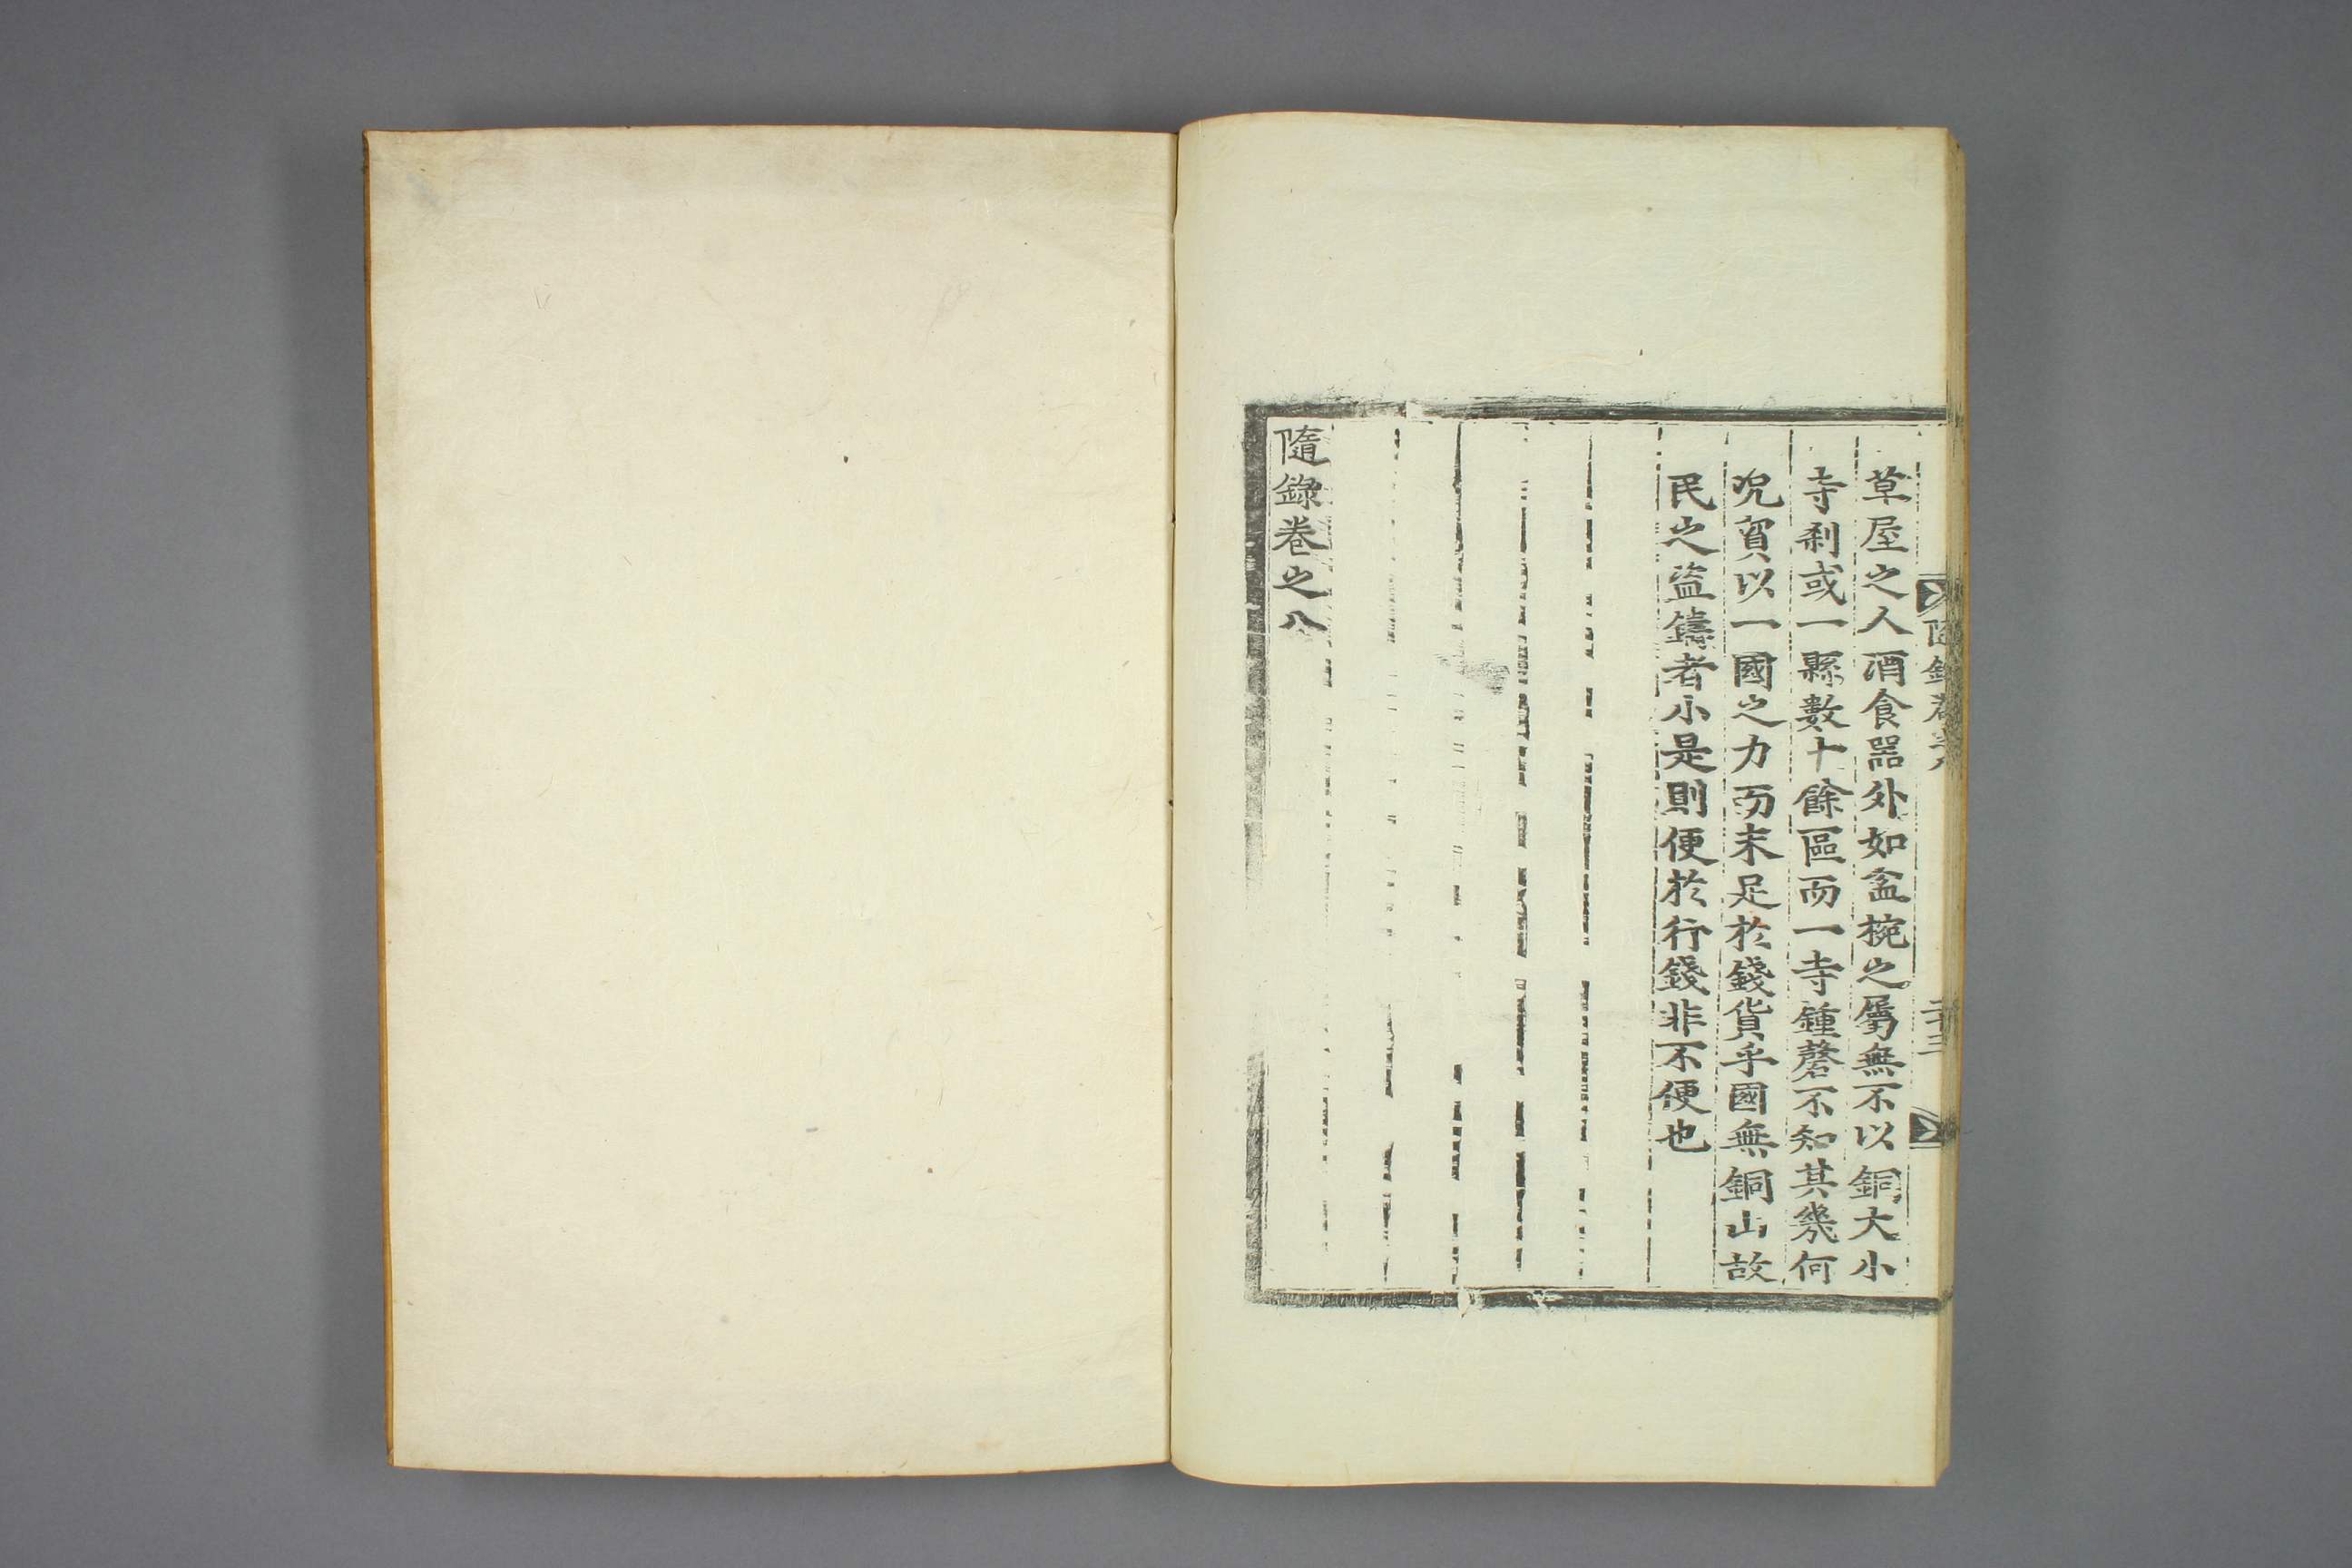 隨錄卷之八
二十三
草屋之人酒食器外如盆椀之屬無不以銅大小
寺刹或一縣數十餘區而一寺鍾磬不知其幾何
况實以一國之力而末足於錢貨乎國無銅山故
民之盗鑄者小是則便於行錢非不便也
隨錄卷之八